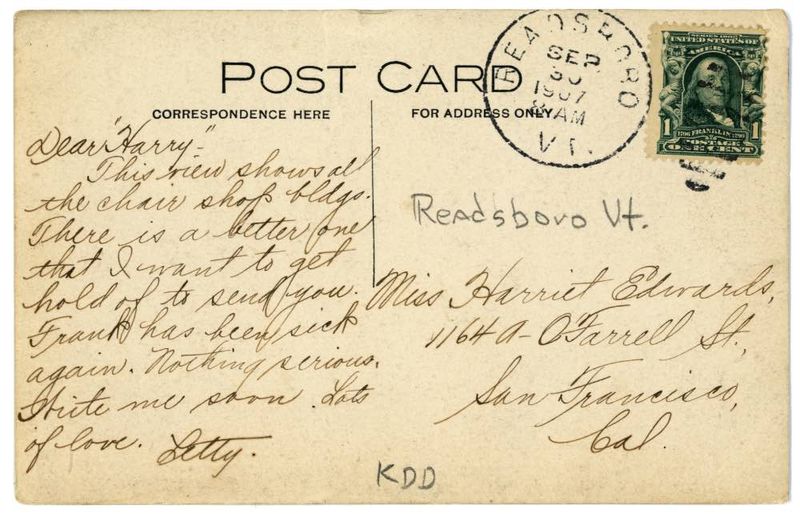 POST CARD
CORRESPONDENCE HERE
FOR ADDRESS ONLY
READSBORO
SEP
30
1907
8 AM
VT.
SERIES 1902
UNITED STATES OF
AMERICA
1706 FRANKLIN 1790
1 POSTAGE 1
ONE CENT
Dear "Harry"-
This view shows all
the chair shop bldgs.
There is a better one
that I want to get
hold of to send you.
Frank has been sick
again. Nothing serious.
Write me soon. Lots
of love. Letty.
Readsboro Vt.
Miss Harriet Edwards,
1164 A- O'Farrell St.,
San Francisco,
Cal.
KDD